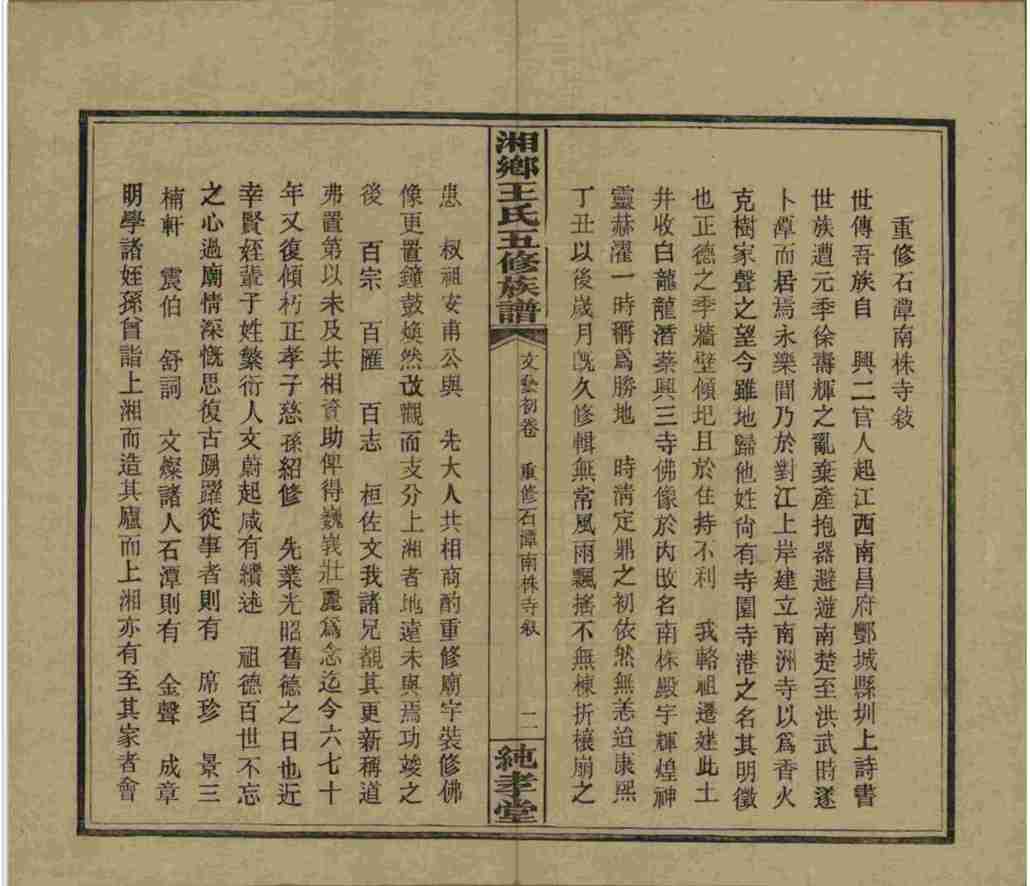 重修石潭南株寺敍
世傳吾族自　興二官人起江西南昌府酆城縣圳上詩書
世族遭元季徐壽輝之亂棄產抱器避遊南楚至洪武時遂
卜潭而居焉永樂間乃於對江上岸建立南洲寺以爲香火
克樹家聲之望今雖地歸他姓尙有寺園寺港之名其明徵
也正德之季牆壁傾圮且於住持不利　我輅祖遷建此土
井收白龍龍潛藥興三寺佛像於內改名南株殿宇輝煌神
靈赫濯一時稱爲勝地　時淸定鼎之初依然無恙迨康熙
丁丑以後歲月旣久修輯無常風雨飄搖不無棟折榱崩之
湘鄉王氏五修族譜
文藝初卷　重修石潭南株寺敍
二
純孝堂
患　叔祖安甫公與　先大人共相商酌重修廟宇裝修佛
像更置鐘鼓煥然改觀而支分上湘者地遠未與焉功竣之
後　百宗　百匯　百志　桓佐文我諸兄覩其更新稱道
弗置第以未及共相資助俾得巍峩壯麗爲念迄今六七十
年又復傾朽正孝子慈孫紹修　先業光昭舊德之日也近
幸賢姪輩子姓繁衍人文蔚起咸有纘述　祖德百世不忘
之心過廟情深慨思復古踴躍從事者則有　席珍　景三
楠軒　震伯　舒詞　文燦諸人石潭則有　金聲　成章
明學諸姪孫曾詣上湘而造其廬而上湘亦有至其家者會